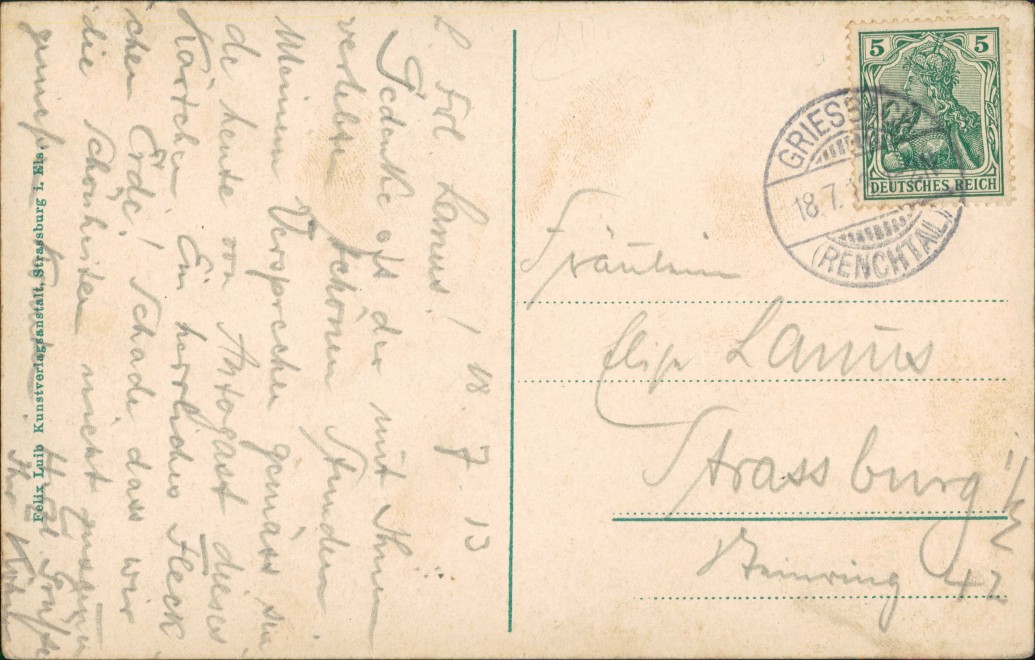 L Frl. Lanus! 18 7 13
Gedenke oft der mit Ihnen
verlebten schönen Stunden
Meinem Versprechen gemäss sen
de heute von Antogast dieses
Kärtchen. Ein herrliches Fleck
chen Erde! Schade dass wir
die Schönheiten nicht zusammen
Ihr
Felix Luib Kunstverlagsanstalt, Strassburg i. Els.
5 5
DEUTSCHES REICH
GRIESBACH
18.7.
(RENCHTAL)
Fräulein
Elise Lanus
Strassburg i/E
Steinring 42